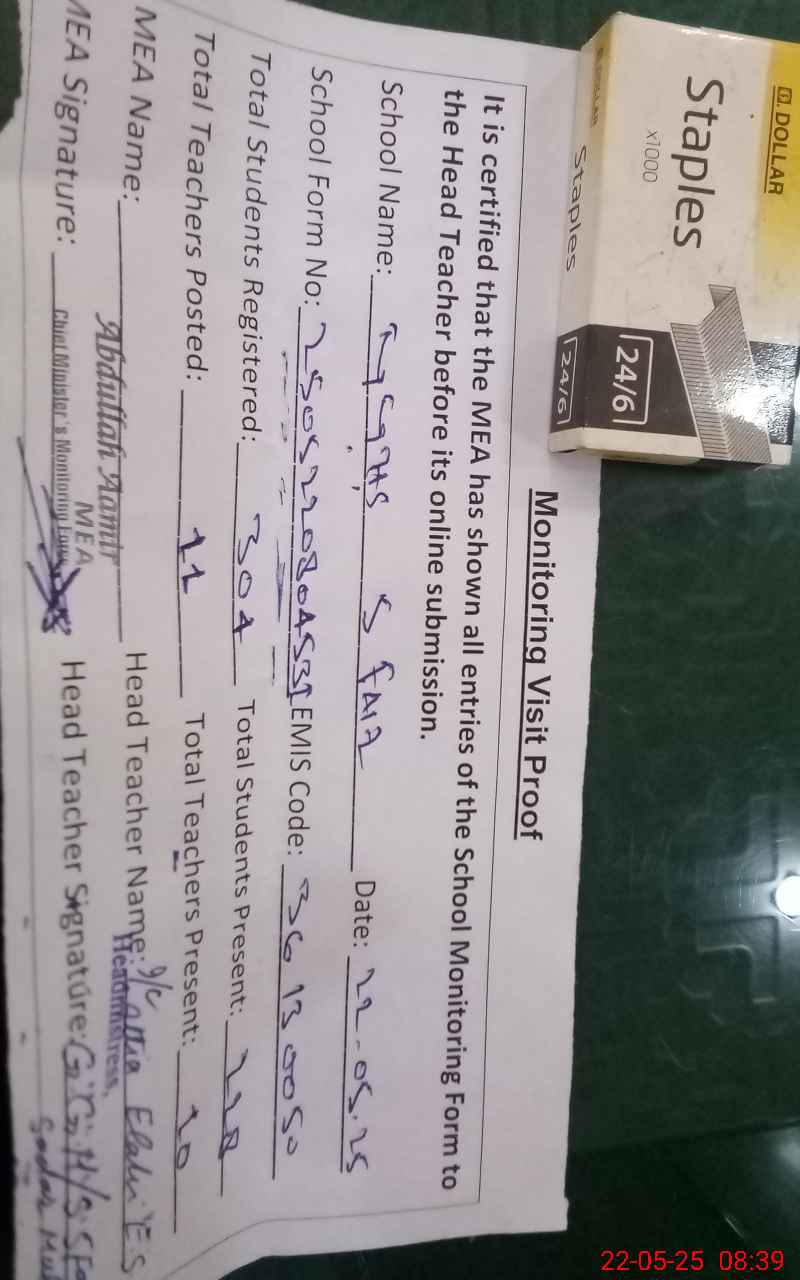 Monitoring Visit Proof
It is certified that the MEA has shown all entries of the School Monitoring Form to
the Head Teacher before its online submission.
School Name: S FAIZ Date: 22-05.25
School Form No: EMIS Code: 36130050
Total Students Registered: 304 Total Students Present:
Total Teachers Posted: 11 Total Teachers Present: 10
MEA Name: Abdullah Aamir Head Teacher Name: I/C
MEA
Headmistress,
MEA Signature: Chief Minister's Monitoring Force Head Teacher Signature: G.G.H/S.S
Sadar
$. DOLLAR
Staples
x1000
24/6
$. DOLLAR
Staples
24/6
22-05-25 08:39